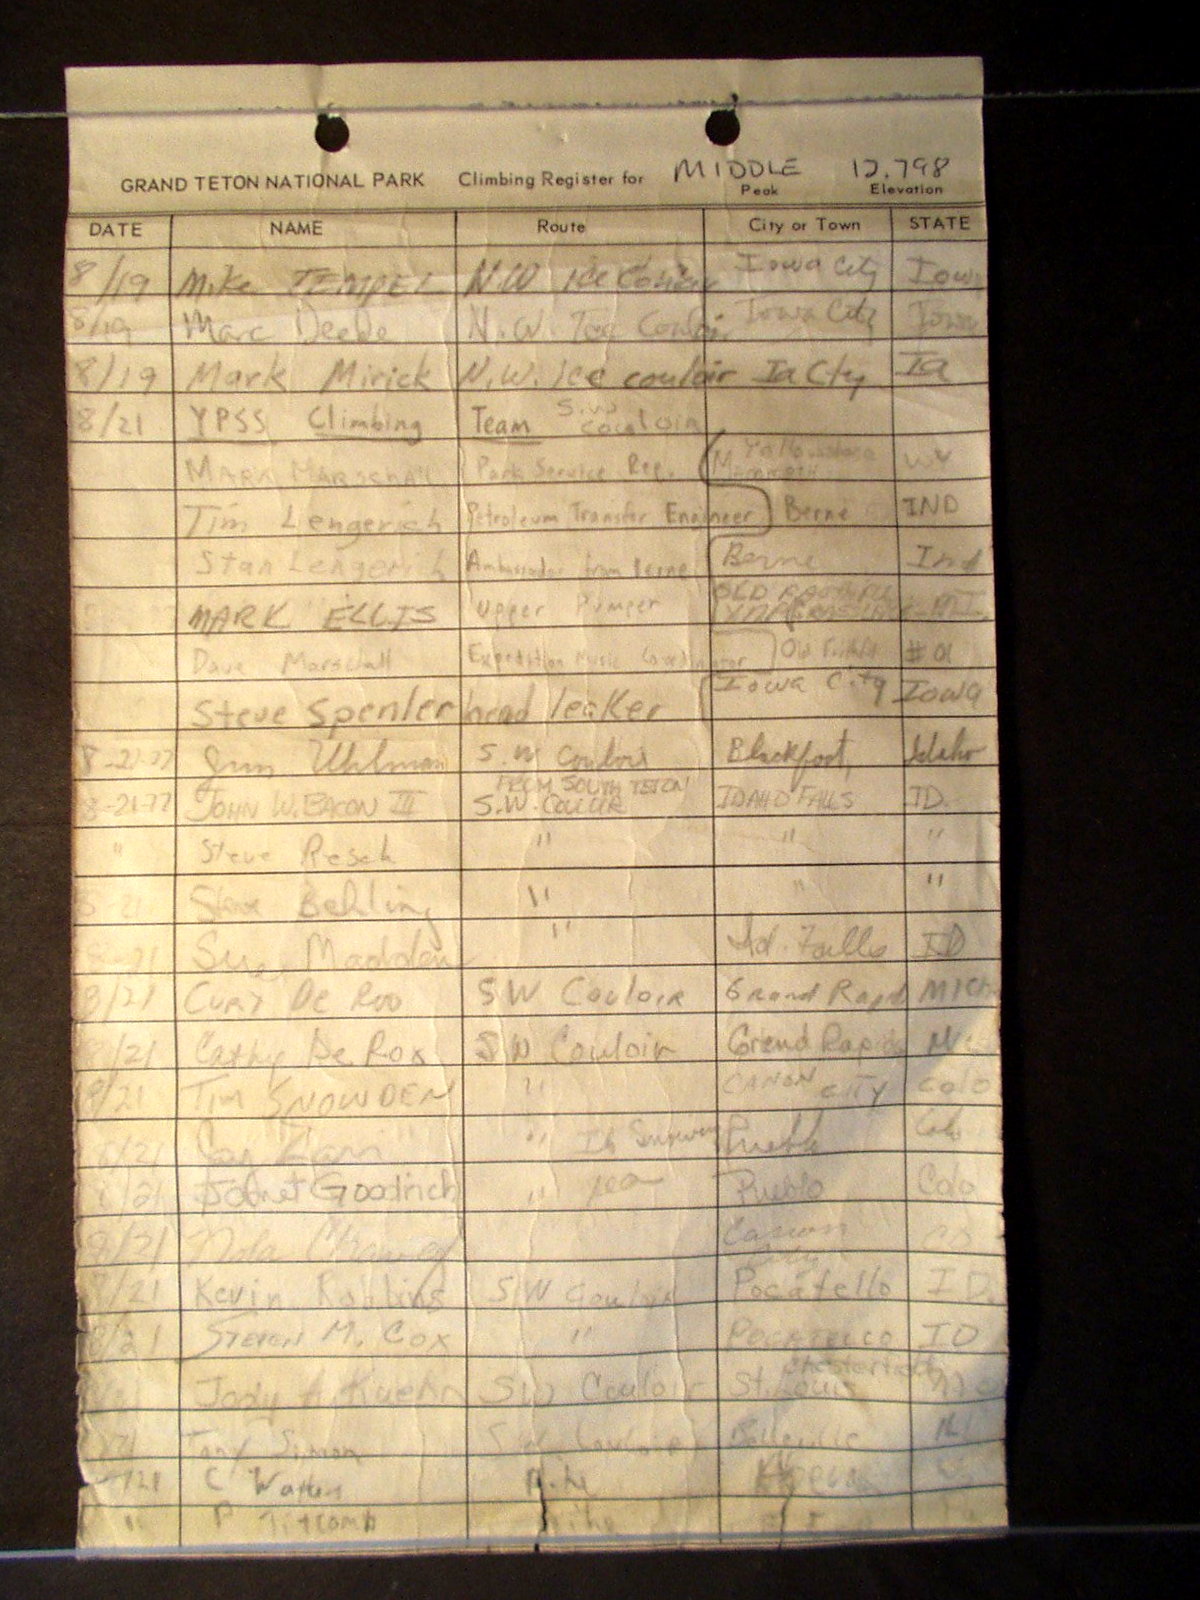 GRAND TETON NATIONAL PARK Climbing Register for MIDDLE 12.798
Peak Elevation
DATE NAME Route City or Town STATE
8/19 Mike TEMPEL N.W Ice Couloir Iowa City Iowa
8/19 Marc Deede N.W. Ice Couloir Iowa City Iowa
8/19 Mark Mirick N.W. Ice couloir Ia Cty Ia
8/21 YPSS Climbing Team S.W couloir
MARK MARSCHALL Park Service Rep. Yellowstone WY
Mammoth
Tim Lengerich Petroleum Transfer Engineer Berne IND
Stan Lengerich Ambassador from Berne Berne Ind
MARK ELLIS Upper Pumper OLD FAITHFUL
Dave Marschall Expedition Music Coordinator Old Faithful #01
Steve Spenler head leaker Iowa City Iowa
8-21-77 Jim Uhlman S.W Couloir Blackfoot, Idaho
8-21-77 JOHN W. BACON III FROM SOUTH TETON S.W. COULOIR IDAHO FALLS ID.
" Steve Resch " " "
8-21 Steve Behling " " "
8-21 Madden " Id. Falls ID
8/21 CURT De Roo SW Couloir Grand Rapid Mich
8/21 Cathy De Roo SW Couloir Grand Rapids
8/21 Tim SNOWDEN " CANON CITY COLO
8/21 " Pueblo Colo
8/21 Goodrich " Pueblo Colo
8/21 Nola Canon City
8/21 Kevin Robbins SW Couloir Pocatello ID.
8/21 Steven M. Cox " POCATELLO ID
Jody A Kuehn SW Couloir St. Louis
Chesterfield
Tony Simon S.W. Couloir Belleville
C Walten
" P Titcomb